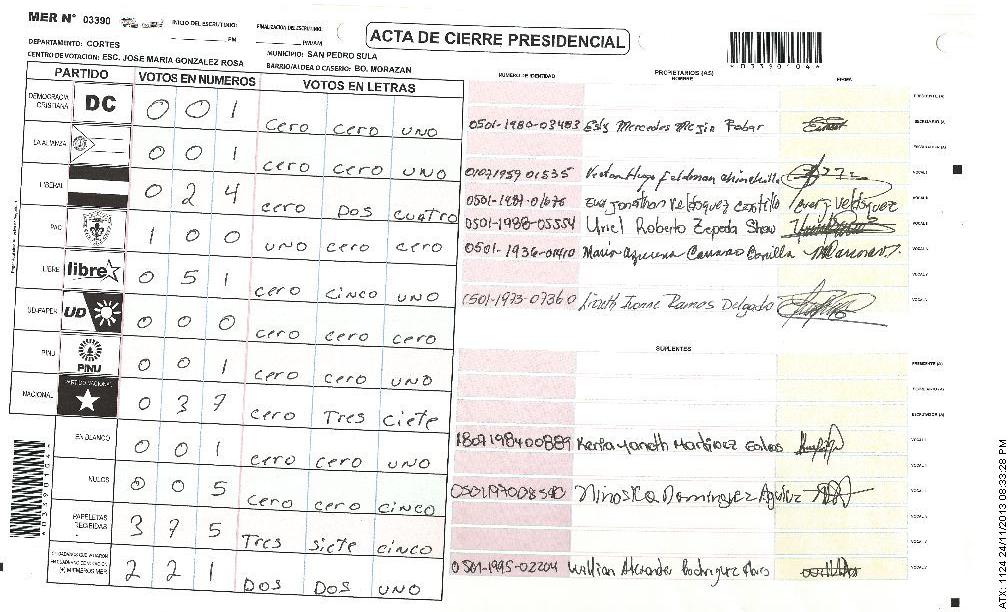 MER N° 03390
INICIO DEL ESCRUTINIO: PM
FINALIZACION DEL ESCRUTINIO: PM/AM
ACTA DE CIERRE PRESIDENCIAL
DEPARTAMENTO: CORTES
MUNICIPIO: SAN PEDRO SULA
CENTRO DE VOTACION: ESC. JOSE MARIA GONZALEZ ROSA
BARRIO/ALDEA O CASERIO: BO. MORAZAN
PARTIDO VOTOS EN NUMEROS VOTOS EN LETRAS
NUMERO DE IDENTIDAD PROPIETARIOS (AS) NOMBRE FIRMA
DEMOCRACIA CRISTIANA DC 0 0 1 cero cero uno
LA ALIANZA 0 0 1 cero cero uno
LIBERAL 0 2 4 cero Dos cuatro
PAC 1 0 0 uno cero cero
LIBRE libre 0 5 1 cero cinco uno
UD-FAPER UD 0 0 0 cero cero cero
PINU PINU 0 0 1 cero cero uno
NACIONAL PARTIDO NACIONAL 0 3 7 cero Tres ciete
EN BLANCO 0 0 1 cero cero uno
NULOS 0 0 5 cero cero cinco
PAPELETAS RECIBIDAS 3 7 5 Tres siete cinco
2 2 1 Dos Dos uno
PRESIDENTE (A)
0501-1980-03483 Mercedes Mejia SECRETARIO (A)
ESCRUTADOR (A)
0107195901535 Victor Hugo Feldman Chinchilla VOCAL I
Jonathan Velasquez Castillo VOCAL
0501-1988-05554 Uriel Roberto Zepeda Show VOCAL
0501-1936-01410 Maria VOCAL
VOCAL
1501-1973-07360 Lizeth Ivonne Ramos Delgado VOCAL
SUPLENTES
PRESIDENTE (A)
SECRETARIO (A)
ESCRUTADOR (A)
1807198400889 Kenia Yaneth Martinez VOCAL
VOCAL
Ninoska Dominguez Aguilar VOCAL
VOCAL
0501-1995-02204 Willian Alexander Rodriguez VOCAL
ATX: 1124 24/11/2013 08:33:28 PM